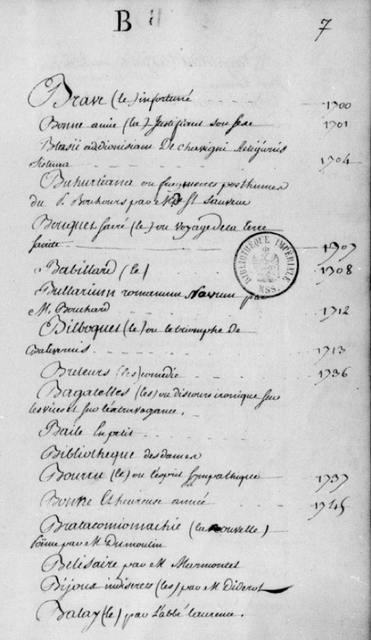 B
7
Brave (le) infortuné 1700
Bonne amie (la) Justifiant son sexe 1701
Blasii ad dionisium De chavigni
1704
Buhursiana ou posthumes
du P. Bouhours par St Sauveur
Bouquet sacré (le) ou voyage de la terre
sainte 1707
Babillard (le) 1708
Bullarium romanum Novum par
M. Bouchard 1712
Bilboquet (le) ou le triomphe de
1713
Buteurs (les) comedie 1736
Bagatelles (les) ou discours ironique sur
les vices et sur l'extravagance.
Baile en petit
Bibliotheque des dames
Bourru (le) ou l'esprit sympathique 1737
Bonne Et heureuse année 1745
(la nouvelle)
Poëme par M Dumoulin
Belisaire par M Marmontel
Bijoux indiscrets (les) par M Diderot
Balay (le) par L'abbé Laurence.
BIBLIOTHÈQUE IMPÉRIALE
MSS.